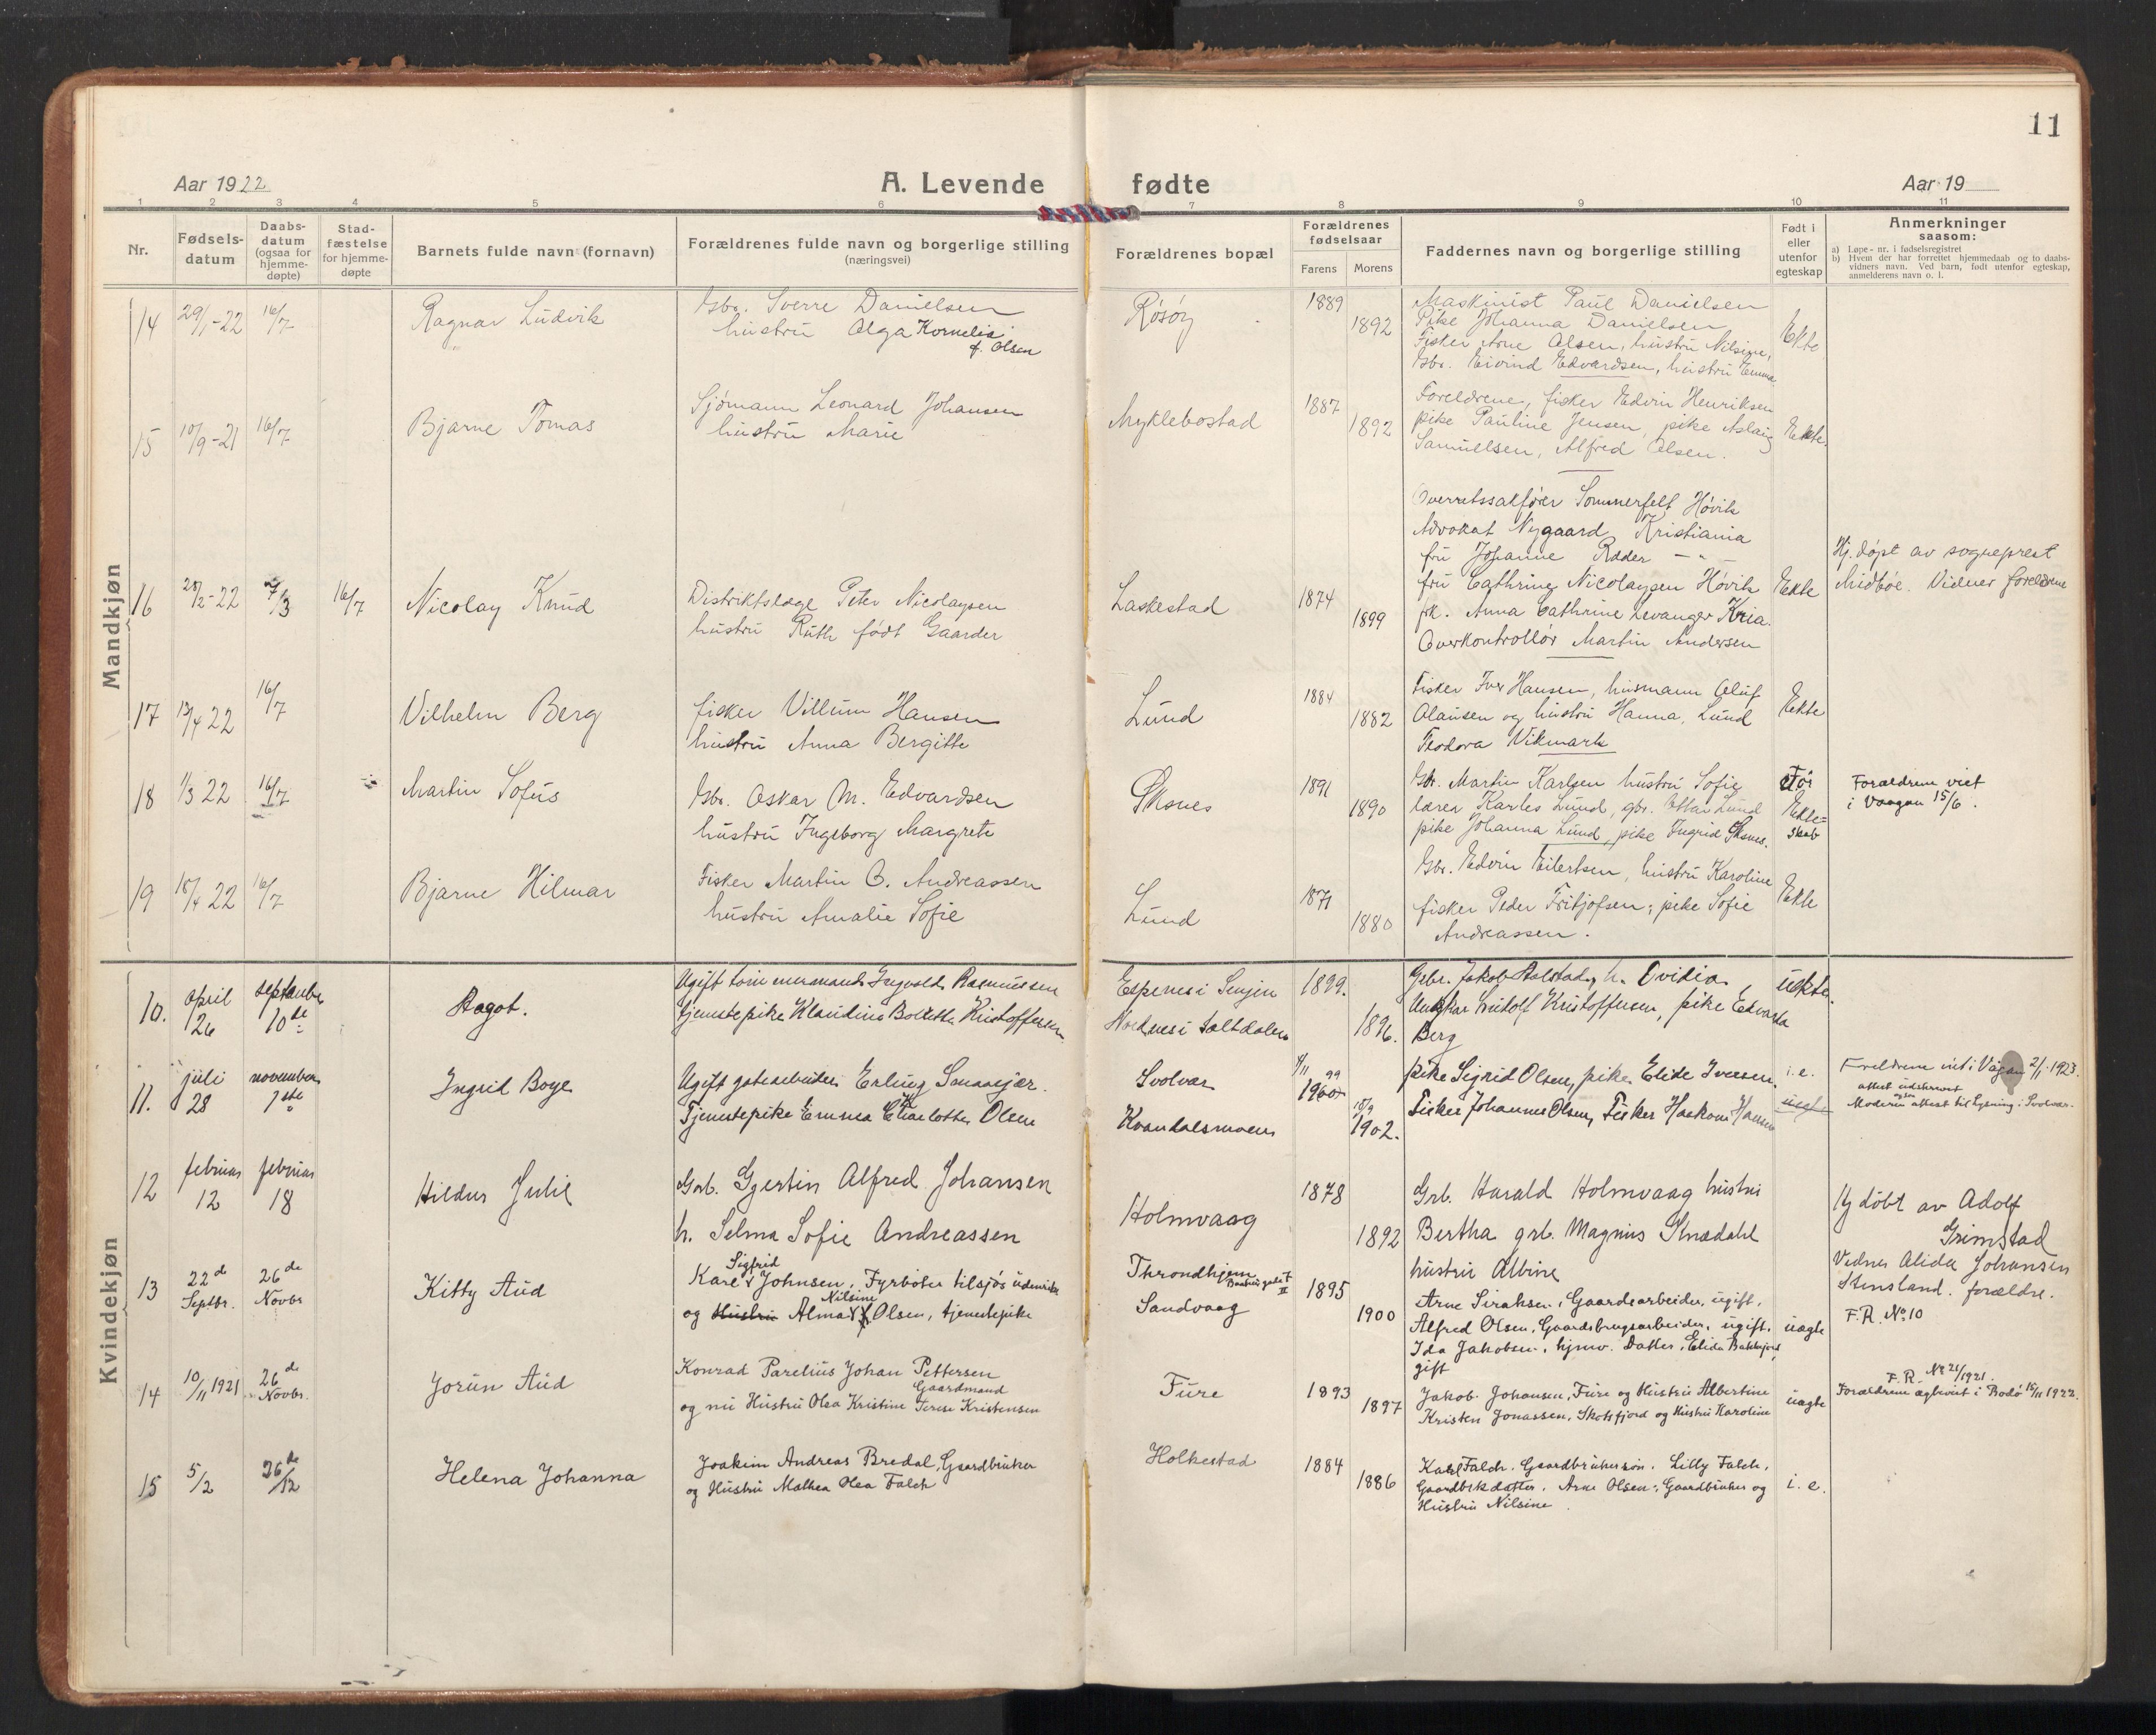 11
Aar 1922
A. Levende fødte
Aar 19
1 2 3 4 5 6 7 8 9 10 11
Nr.
Fødsels-
datum
Daabs-
datum
(ogsaa for
hjemme-
døpte)
Stad-
fæstelse
for hjemme-
døpte
Barnets fulde navn (fornavn)
Forældrenes fulde navn og borgerlige stilling
(næringsvei)
Forældrenes bopæl
Forældrenes
fødselsaar
Farens Morens
Faddernes navn og borgerlige stilling
Født i
eller
utenfor
egteskap
Anmerkninger
saasom:
a) Løpe-nr. i fødselsregistret
b) Hvem der har forrettet hjemmedaab og to daabs-
vidners navn. Ved barn, født utenfor egteskap,
anmelderens navn o. l.
Mandkjøn
14 29/1-22 16/7
Ragnar Ludvik
Gbr. Sverre Danielsen
hustru Olga Kornelia
f. Olsen
Røsøy
1889
1892
Maskinist Paul Danielsen
Pike Johanna Danielsen
Fisker Arne Olsen, hustru Nilsine,
Gbr. Eivind Edvardsen, hustru Emma
Ekte
15 10/9-21 16/7
Bjarne Tomas
Sjømann Leonard Johansen
hustru Marie
Myklebostad
1887
1892
Foreldrene, fisker Edvin Henriksen
pike Pauline Jensen, pike Aslaug
Samuelsen, Alfred Olsen.
Ekte
16 28/2-22 7/3 16/7
Nicolay Knud
Distriktslæge Peter Nicolaysen
hustru Ruth født Gaarder
Laskestad
1874
1899
Overretssakfører Sommerfelt Høvik
Advokat Nygaard, Kristiania
fru Johanne Rdder — " —
fru Cathrine Nicolaysen Høvik
frk. Anna Cathrine Levanger Kria.
Overkontrollør Martin Andersen
Ekte
Hj. døpt av sogneprest
Midbøe. Vidner foreldrene
17 13/4 22 16/7
Vilhelm Berg
fisker Villum Hansen
hustru Anna Bergitte
Lund
1884
1882
Fisker Iver Hansen, husmann Oluf
Olausen og hustru Hanna, Lund
Teodora Vikmark
Ekte
18 1/3 22 16/7
Martin Sofus
Gbr. Oskar M. Edvardsen
hustru Ingeborg Margrete
Sksnes
1891
1890
Gbr. Martin Karlsen hustru Sofie
lærer Karles Lund, gbr. Ottar Lund
pike Johanna Lund, pike Ingrid Sksnes.
Før
Ekte=
skab
Forældrene viet
i Vaagan 15/6.
19 18/4 22 16/7
Bjarne Hilmar
Fisker Martin B. Andreassen
hustru Amalie Sofie
Lund
1871
1880
Gbr. Edvin Eilertsen, hustru Karoline
fisker Peder Fritjofsen; pike Sofie
Andreassen.
Ekte
Kvindekjøn
10. april 26 september 10de
Dagot.
Ugift tømmermand Ingvald Rasmussen
tjenestepike Klaudine Bolette Kristoffersen
Espenes i Senjen
Nordnes i Saltdalen
1899.
1896.
Gbr. Jakob Aalstad, h. Ovidia,
Ungkar Ludolf Kristoffersen, pike Edvarda
Berg
uekte.
11. juli 28 november 1ste
Ingrid Boye
Ugift gatearbeider Erling
Tjenestepike Emma Charlotte Olsen
Svolvær
Kvandalsmoen
4/11 99
1900
18/9
1902.
pike Sigrid Olsen, pike Elide Iversen,
Fisker Johannes Olsen, Fisker Haakon Hansen
i.e.
Foreldrene viet i Vågan 2/1-1923.
attest utskrevet
Moderen attest til lysning i Svolvær.
12 februar 12 februar 18
Hildur Julie
Grb. Gjertin Alfred Johansen
h. Selma Sofie Andreassen
Holmvaag
1878
1892
Grb. Harald Holmvaag hustru
Bertha grb. Magnus Knædahl
hustru Albine
Hj døbt av Adolf
Grimstad
Vidner Alida Johansen
Stensland. forældre.
13 22de Septbr. 26de Novbr
Kitty Aud
Sigfrid
Karl Johnsen, Fyrbøter tilsjøs udenriks
Nilsine
og Hustru Alma Olsen, tjenestepike
Throndhjem
Sandvaag
1895
1900
Arne Siraksen, Gaardsarbeider, ugift,
Alfred Olsen, Gaardsbrugsarbeider, ugift,
Ida Jakobsen, hjmv. Datter, Elida Bakkejord,
gift
uægte
F.R. No 10
14 10/11 1921 26de Novbr.
Jorun Aud
Konrad Parelius Johan Pettersen
Gaardmand
og nu Hustru Olea Kristine Terese Kristensen
Fure
1893
1897
Jakob Johansen, Fure og Hustru Albertine
Kristen Jonassen, Skotsfjord og Hustru Karoline
uægte
F.R. No 21/1921.
Forældrene ægteviet i Bodø 18/11 1922
15 5/2 26de/12
Helena Johanna
Joakim Andreas Bredal, Gaardbruker
og Hustru Mathea Olea Falch
Holkestad
1884
1886
Karl Falch, Gaardbrukersøn. Lilly Falch,
Gaardbrkdatter, Arne Olsen, Gaardbruker og
Hustru Nilsine.
i.e.